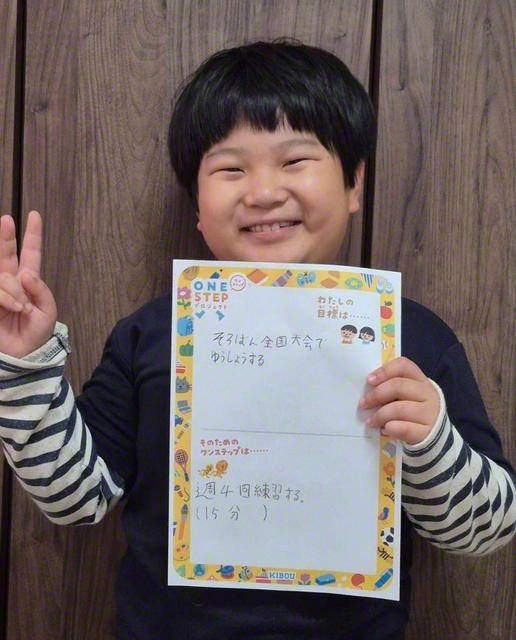 ONE
STEP
プロジェクト
わたしの
目標は……
そろばん全国大会で
ゆうしょうする
そのための
ワンステップは……
週4回練習する。
(15分 )
KIBOU